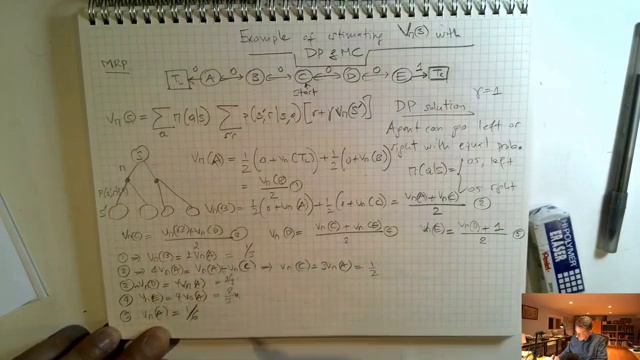 Example of estimating Vπ(s) with
DP & MC
MRP
TL 0 A 0 B 0 C 0 D 0 E 1 TR
start
Vπ(s) = Σ_a π(a|s) Σ_s',r p(s',r|s,a) [r + γVπ(s')]
DP solution γ=1
Agent can go left or
right with equal prob.
π(a|s) = { 0.5, left
0.5 right
S
π
p(s',r|s,a)
S'
Vπ(A) = 1/2 (0 + Vπ(TL)) + 1/2 (0 + Vπ(B))
= Vπ(B)/2 ①
Vπ(B) = 1/2 (0 + Vπ(A)) + 1/2 (0 + Vπ(C)) = Vπ(A) + Vπ(C) / 2 ②
Vπ(C) = Vπ(B) + Vπ(D) / 2 ③ Vπ(D) = Vπ(C) + Vπ(E) / 2 ④ Vπ(E) = Vπ(D) + 1 / 2 ⑤
① ⇒ Vπ(B) = 2Vπ(A) = 1/3
② ⇒ 4Vπ(A) = Vπ(A) + Vπ(C) ⇒ Vπ(C) = 3Vπ(A) = 1/2
③ ⇒ Vπ(D) = 4Vπ(A) = 2/3
⑤ Vπ(A) = 1/6
HI-POLYMER
ERASER
Pentel